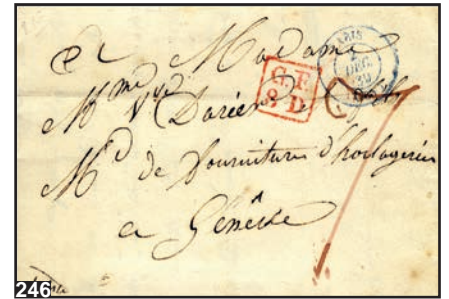 A Madame
Mme Vve Darier & fils
Md de fournitures d'horlogeries
a Genêve
C.F.
8.D
PARIS
2
DEC.
246